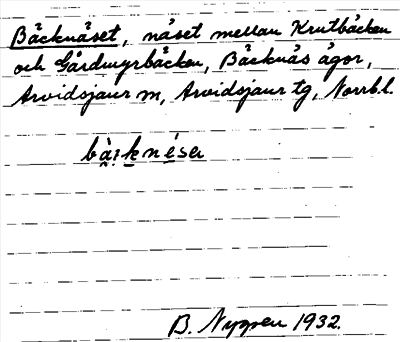 Bäcknäset, näset mellan Krutbäcken
och Gårdmyrbäcken, Bäcknäs ägor,
Arvidsjaur sn, Arvidsjaur tg, Norrb.l.
B. Nygren 1932.